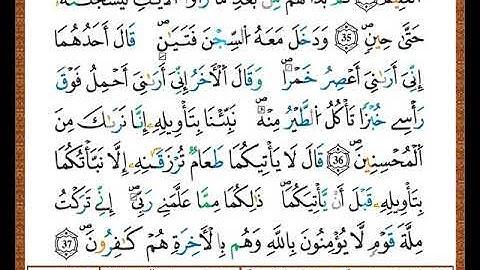 ثُمَّ بَدَا لَهُم مِّنۢ بَعْدِ مَا رَأَوُاْ الْأٓيَٰتِ لَيَسْجُنُنَّهُۥ
حَتَّىٰ حِينٍ ۝٣٥ وَدَخَلَ مَعَهُ السِّجْنَ فَتَيَٰنِ قَالَ أَحَدُهُمَا
إِنِّيَ أَرَىٰنِيَ أَعْصِرُ خَمْرًا وَقَالَ الْأٓخَرُ إِنِّيَ أَرَىٰنِيَ أَحْمِلُ فَوْقَ
رَأْسِي خُبْزًا تَأْكُلُ الطَّيْرُ مِنْهُ نَبِّئْنَا بِتَأْوِيلِهِۦ إِنَّا نَرَىٰكَ مِنَ
الْمُحْسِنِينَ ۝٣٦ قَالَ لَا يَأْتِيكُمَا طَعَامٌ تُرْزَقَانِهِۦ إِلَّا نَبَّأْتُكُمَا
بِتَأْوِيلِهِۦ قَبْلَ أَن يَأْتِيَكُمَا ذَٰلِكُمَا مِمَّا عَلَّمَنِي رَبِّيَ إِنِّي تَرَكْتُ
مِلَّةَ قَوْمٍ لَّا يُؤْمِنُونَ بِاللَّهِ وَهُم بِالْأٓخِرَةِ هُمْ كَٰفِرُونَ ۝٣٧